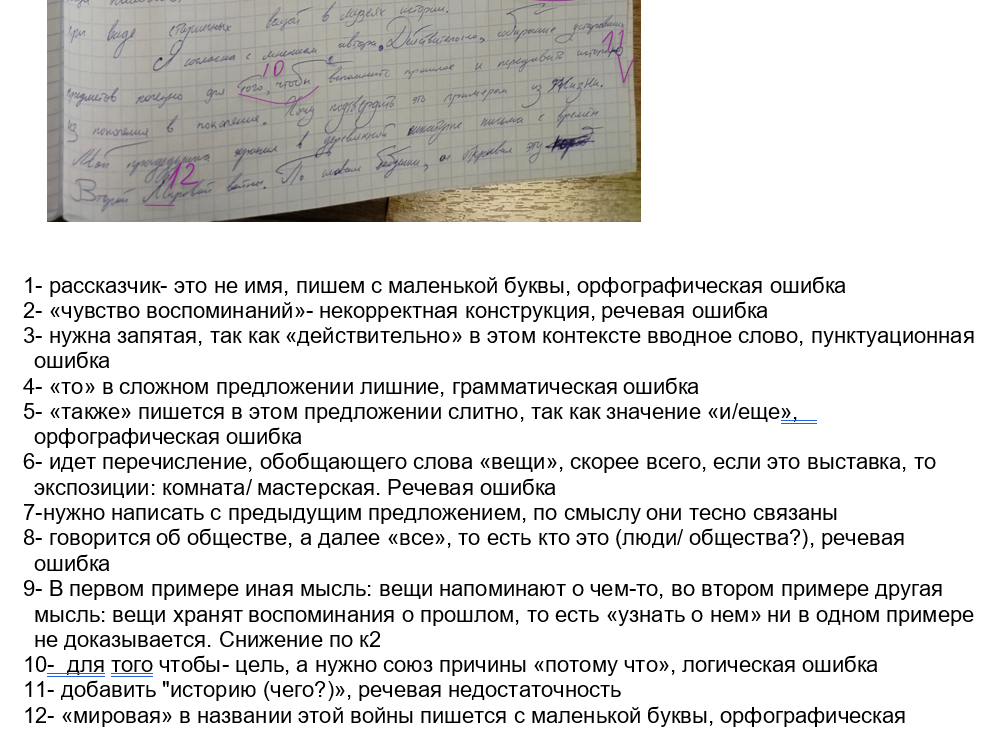 при виде старинных вещей в музеях истории.
Я согласна с мнением автора. Действительно, собирание устаревших
10
11
предметов полезно для того, чтобы вспоминать прошлое и передавать историю
из поколения в поколение. Хочу подтвердить это примером из жизни.
Мой прадедушка хранил в деревянной шкатулке письма с времён
12
Второй Мировой войны. По словам бабушки, он эту
1- рассказчик- это не имя, пишем с маленькой буквы, орфографическая ошибка
2- «чувство воспоминаний»- некорректная конструкция, речевая ошибка
3- нужна запятая, так как «действительно» в этом контексте вводное слово, пунктуационная
ошибка
4- «то» в сложном предложении лишние, грамматическая ошибка
5- «также» пишется в этом предложении слитно, так как значение «и/еще»,
орфографическая ошибка
6- идет перечисление, обобщающего слова «вещи», скорее всего, если это выставка, то
экспозиции: комната/ мастерская. Речевая ошибка
7-нужно написать с предыдущим предложением, по смыслу они тесно связаны
8- говорится об обществе, а далее «все», то есть кто это (люди/ общества?), речевая
ошибка
9- В первом примере иная мысль: вещи напоминают о чем-то, во втором примере другая
мысль: вещи хранят воспоминания о прошлом, то есть «узнать о нем» ни в одном примере
не доказывается. Снижение по к2
10-  для того чтобы- цель, а нужно союз причины «потому что», логическая ошибка
11- добавить "историю (чего?)», речевая недостаточность
12- «мировая» в названии этой войны пишется с маленькой буквы, орфографическая